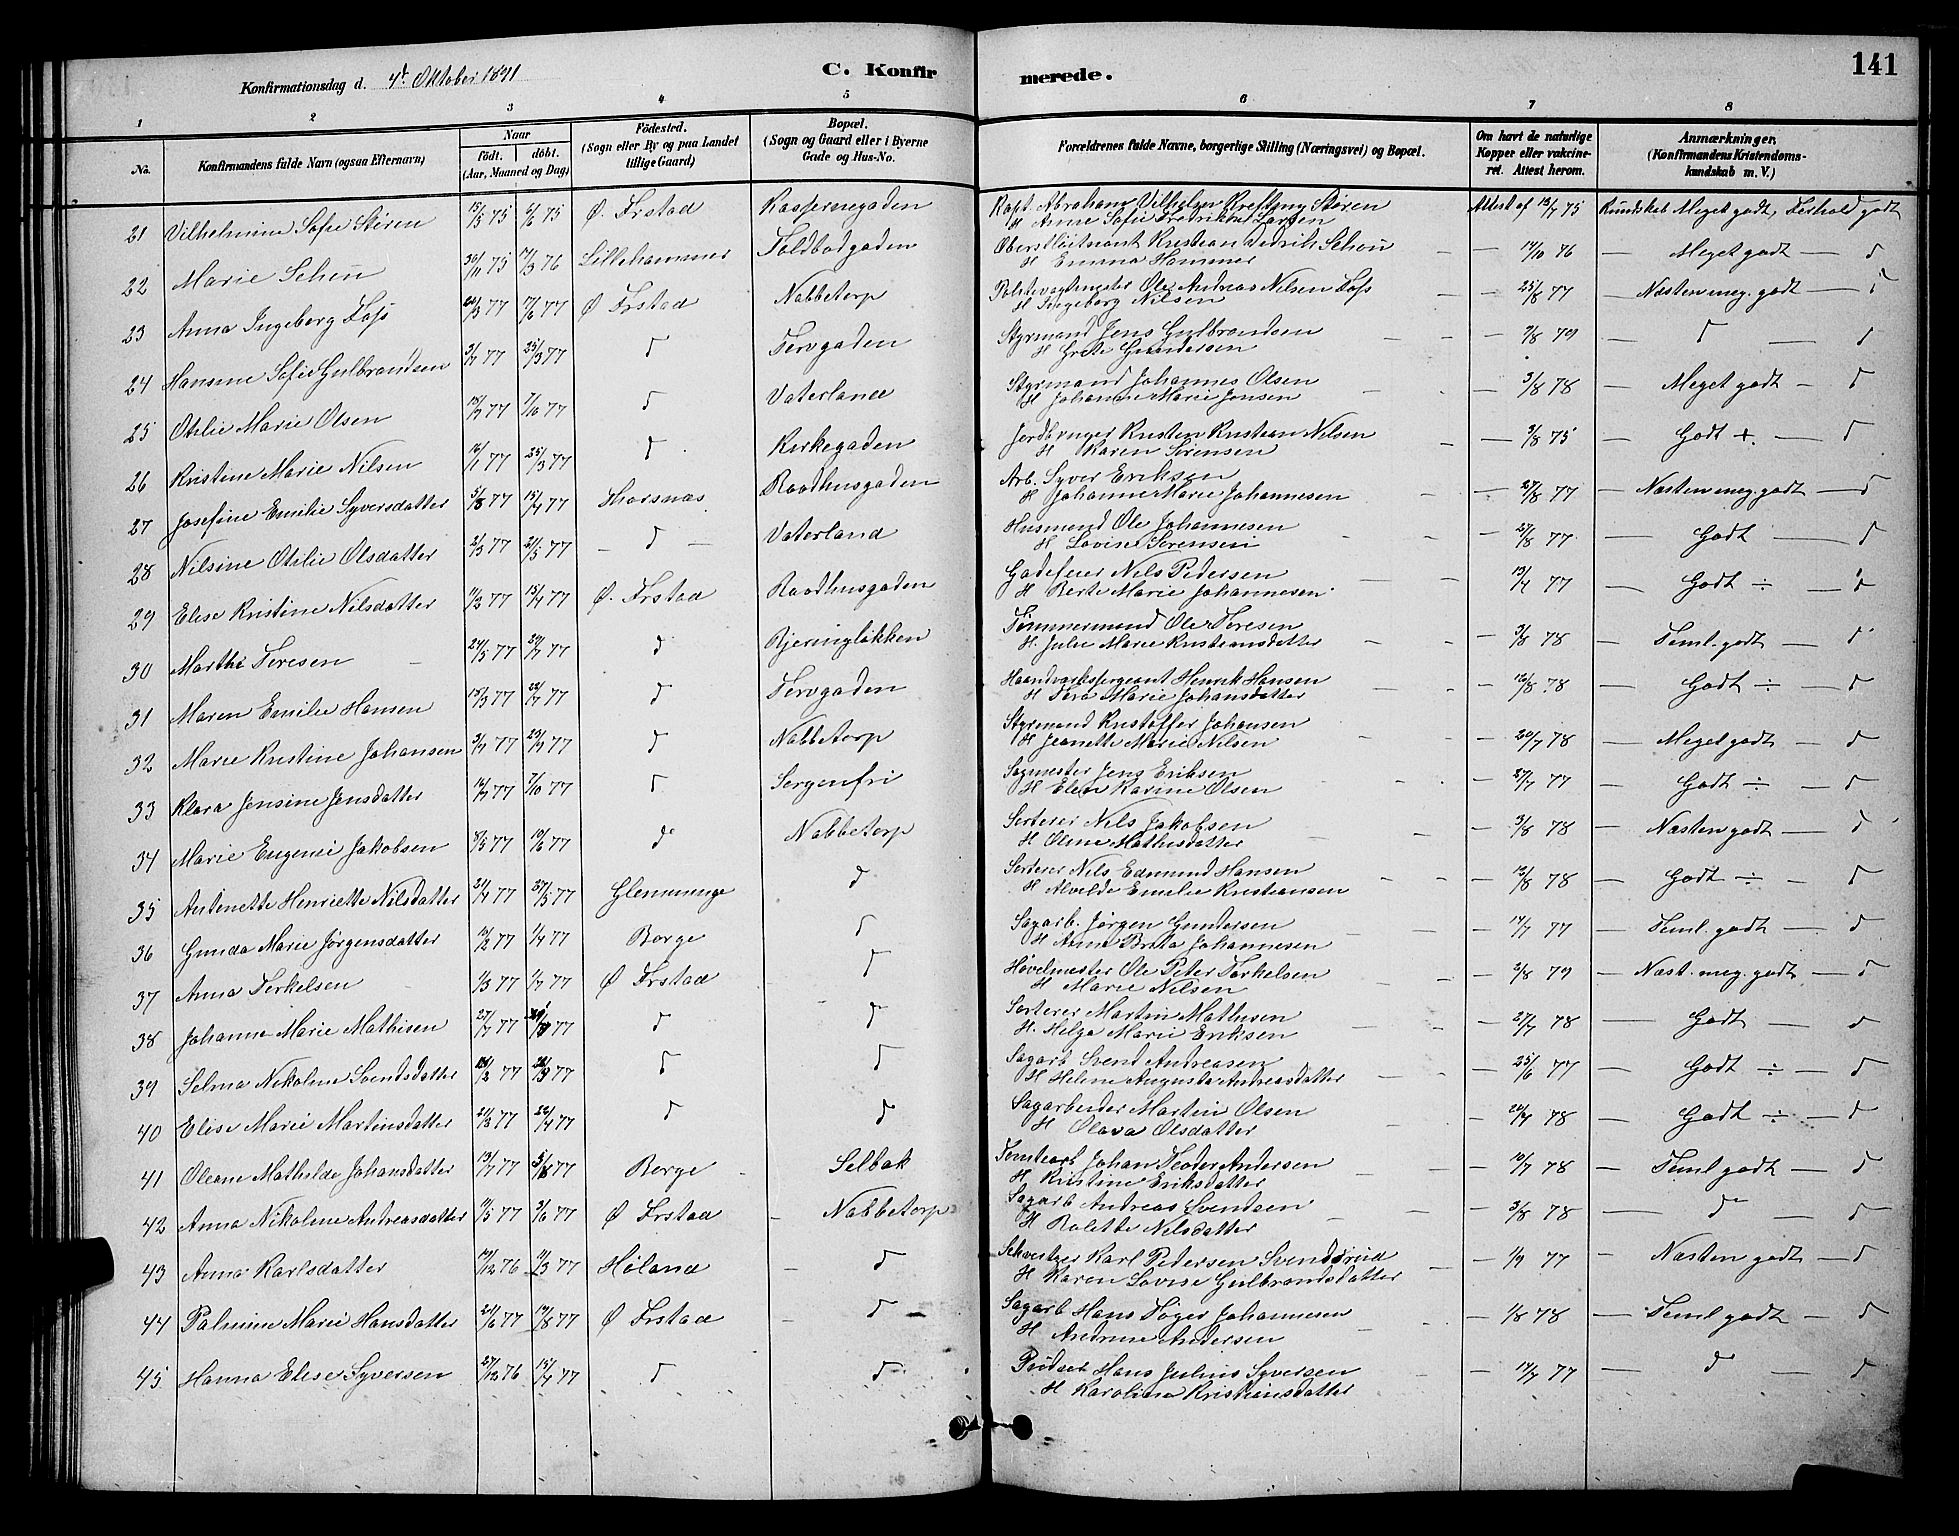 141
Konfirmationsdag d. 4d Oktober 1891
C. Konfir
merede.
1 2 3 4 5 6 7 8
No. Konfirmandens fulde Navn (ogsaa Efternavn)
Naar
födt. döbt.
(Aar, Maaned og Dag)
Födested.
(Sogn eller By og paa Landet
tillige Gaard)
Bopæl.
(Sogn og Gaard eller i Byerne
Gade og Hus-No.
Forældrenes fulde Navne, borgerlige Stilling (Næringsvei) og Bopæl.
Om havt de naturlige
Kopper eller vakcine-
ret. Attest herom.
Anmærkninger.
(Konfirmandens Kristendoms-
kundskab m. V.)
21 Vilhelmine Sofie Stören 15/5 75 6/6 75 Ø. Frstad Kaspernegaden Kapt. Abraham Vilhelm Krefting Stören Attest af 13/7 75 Kundskab Meget godt, Forhold godt
H Anne Sofie Fredrikke Larsen
22 Marie Schou 30/11 75 17/3 76 Lillehammer Toldbodgaden Oberstlöitnant Kristian Didrik Schou — 14/10 76 — Meget godt — d
H Emma Hammer
23 Anna Ingeborg Foss 20/3 77 7/6 77 Ø Frstad Nabbetorp Politivagtmester Ole Andreas Nilsen Foss — 25/8 77 — Næsten meg. godt — d
H Ingeborg Nilsen
24 Hansine Sofie Gulbrandsen 3/1 77 25/3 77 d Torvgaden Styrmand Jens Gulbrandsen — 2/8 79 — d — d
H Grete Gundersen
25 Otilie Marie Olsen 15/7 77 7/10 77 d Vaterland Styrmand Johannes Olsen — 3/8 78 — Meget godt — d
H Johanne Marie Jensen
26 Kristine Marie Nilsen 16/1 77 25/3 77 d Kirkegaden Jordbruger Kristen Kristian Nilsen — 3/8 75 — Godt +. — d
H Karen Sörensen
27 Josefine Emilie Syversdatter 5/3 77 15/4 77 Thorsnæs Raadhusgaden Arb. Syver Eriksen — 27/8 77 — Næsten meg. godt — d
H Johanne Marie Johannesen
28 Nilsine Otilie Olsdatter 2/3 77 21/5 77 — d — Vaterland Husmand Ole Johannesen — 27/8 77 — Godt — d
H Lovise Sörensen
29 Elise Kristine Nilsdatter 11/2 77 15/4 77 Ø. Frstad Raadhusgaden Gadefeier Nils Pedersen — 19/4 77 — Godt ÷ — d
H Berte Marie Johannesen
30 Marthe Toresen 24/5 77 29/7 77 d Bjeringlökken Tömmermand Ole Toresen — 3/8 78 — Teml. godt — d
H. Julie Marie Kristiansdatter
31 Maren Emilie Hansen 15/3 77 22/7 77 d Torvgaden Haandværkssergeant Henrik Hansen — 12/8 78 — Godt ÷ — d
H Tera Marie Johansdatter
32 Marie Kristine Johansen 3/7 77 29/7 77 d Nabbetorp Styrmand Kristoffer Johansen — 20/7 78 — Meget godt — d
H Jeanette Marie Nilsen
33 Klara Jensine Jensdatter 16/7 77 7/10 77 d Sorgenfri Sagmester Jens Eriksen — 27/7 77 — Godt ÷ — d
H Elen Karine Olsen
34 Marie Eugenie Jakobsen 8/5 77 10/6 77 d Nabbetorp Sorterer Nils Jakobsen — 3/8 78 — Næsten godt — d
H Oline Mathisdatter
35 Antonette Henriette Nilsdatter 21/4 77 27/5 77 Glemminge d Sorterer Nils Edmund Hansen — 12/8 78 — Godt ÷ — d
H Alvilde Emilie Kristiansen
36 Gunda Marie Jörgensdatter 13/2 77 1/4 77 Borge d Sagarb. Jörgen Gundersen — 17/7 77 — Teml. godt — d
H Anne Brita Johannesen
37 Anna Torkelsen 1/3 77 1/7 77 Ø Frstad d Hövelmester Ole Peter Torkelsen — 2/8 79 — Næst. meg. godt — d
H Marie Nilsen
38 Johanne Marie Mathisen 27/7 77 77 d d Sorterer Martin Mathisen — 27/7 78 — Godt — d
H. Helga Marie Eriksen
39 Selma Nikoline Svendsdatter 77 77 d d Sagarb Svend Andreasen — 25/6 77 — Godt ÷ — d
H Helene Augusta Andreasdatter
40 Elise Marie Martinsdatter 21/3 77 22/4 77 d d Sagarbeider Martin Olsen — 78 — Godt ÷ — d
H Olava Olsdatter
41 Oleane Mathilde Johansdatter 19/7 77 5/8 77 Borge Selbak Tomtearb Johan Teodor Andersen — 10/7 78 — Teml godt — d
H Kristine Eriksdatter
42 Anna Nikoline Andreasdatter 11/5 77 3/6 77 Ø Frstad Nabbetorp Sagarb Andreas Svendsen — 3/8 78 — d — d
H Bolette Nilsdatter
43 Anna Karlsdatter 19/12 76 11/3 77 Höland d Karl Pedersen Svendsrud — 1/9 77 — Næsten godt — d
H Karen Lovise Gulbrandsdatter
44 Palmine Marie Hansdatter 24/6 77 19/8 77 Ø Frstad d Sagarb Hans Töger Johannesen — 1/8 78 — Teml godt — d
H Andrine Andersen
45 Hanna Elise Syversen 27/12 76 15/4 77 d d Hans Julius Syversen — 17/7 77 — d — d
H Karoline Kristiansdatter